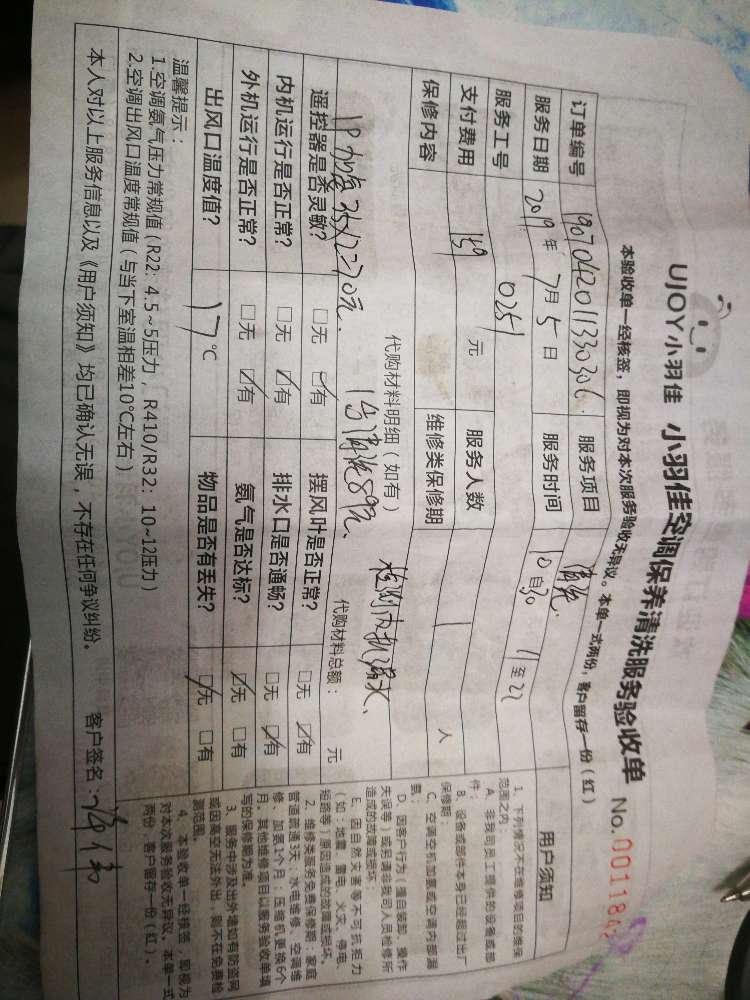 UJOY小羽佳 小羽佳空调保养清洗服务验收单 No.0011842
本验收单一经核签，即视为对本次服务验收无异议。本单一式两份，客户留存一份（红）
订单编号 190704201133030б 服务项目 清洗
服务日期 2019年7月5日 服务时间 10自30 11至22
服务工号 0251 服务人数 1 人
支付费用 159 元 维修类保修期
保修内容
代购材料明细（如有） 检测内机漏水、
1P加氟 1台清洗89元、 代购材料总额： 元
遥控器是否灵敏？ □无 ☑有 摆风叶是否正常？ □无 ☑有
内机运行是否正常？ □无 ☑有 排水口是否通畅？ □无 ☑有
外机运行是否正常？ □无 ☑有 氨气是否达标？ ☑无 □有
出风口温度值？ 17℃ 物品是否有丢失？ ☑无 □有
温馨提示：
1.空调氨气压力常规值（R22：4.5~5压力，R410/R32：10~12压力）
2.空调出风口温度常规值（与当下室温相差10℃左右）
本人对以上服务信息以及《用户须知》均已确认无误，不存在任何争议纠纷。 客户签名：
用户须知
1、下列情况不在维修项目的维保
范围之内：
A、非我司员工提供的设备或部
件；
B、设备或部件本身已经超过出厂
保修期；
C、空调空机加氨或空调内部漏
氨；
D、因客户行为（擅自装卸、操作
失误等）或另请非我司人员检修所
造成的故障或损坏；
E、因自然灾害等不可抗拒力
（如：地震、雷电、火灾、停电、
短路等）原因造成的故障或损坏。
2、维修类服务免费保修期：家庭
管道疏通3天；水电维修、空调维
修、加氨1个月；压缩机更换6个
月。其他维修项目以服务验收单填
写的保修期为准。
3、服务中涉及出外墙如有防盗网
或因高空无法外出，则不在免费检
测范围。
4、本验收单一经核签，即视为
对本次服务验收无异议。本单一式
两份，客户留存一份（红）。